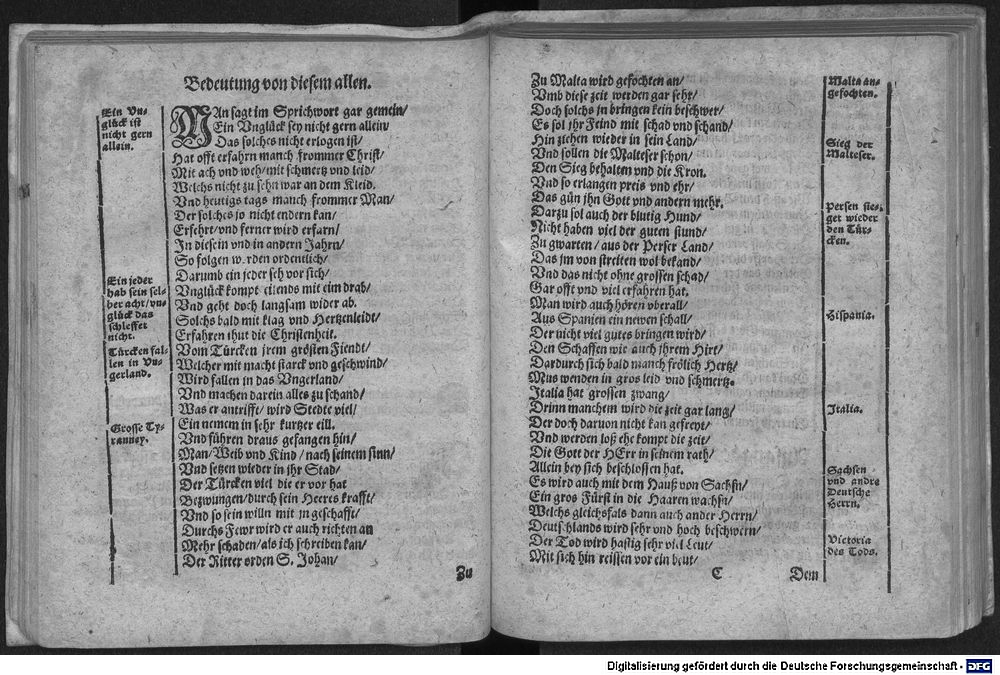 Bedeutung von diesem allen.
Ein Vn-
glück ist
nicht gern
allein.
MAn sagt im Sprichwort gar gemein/
Ein Vnglück sey nicht gern allein/
Das solches nicht erlogen ist/
Hat offt erfahrn manch frommer Christ/
Mit ach vnd weh/mit schmertz vnd leid/
Welchs nicht zu sehn war an dem Kleid.
Vnd heutigs tags manch frommer Man/
Der solches jo nicht endern kan/
Erfehrt/vnd ferner wird erfarn/
In diesem vnd in andern Jahrn/
So folgen werden ordentlich/
Darumb ein jeder seh vor sich/
Ein jeder
hab sein sel-
ber acht/vn-
glück das
schleffet
nicht.
Vnglück kompt eilends mit eim drab/
Vnd geht doch langsam wider ab.
Solchs bald mit klag vnd Hertzenleidt/
Erfahren thut die Christenheit.
Türcken fal-
len in Vn-
gerland.
Vom Türcken jrem grösten Fiendt/
Welcher mit macht starck vnd geschwind/
Wird fallen in das Vngerland/
Vnd machen darein alles zu schand/
Was er antrifft/ wird Stedte viel/
Grosse Ty-
ranney.
Ein nemem in sehr kurtzer eill.
Vnd führen draus gefangen hin/
Man/ Weib vnd Kind / nach seinem sinn/
Vnd setzen wieder in jhr Stad/
Der Türcken viel die er vor hat
Bezwungen/durch sein Heeres krafft/
Vnd so sein willn mit jn geschafft/
Durchs Fewr wird er auch richten an
Mehr schaden/als ich schreiben kan/
Der Ritter orden S. Johan/
Zu
Zu Malta wird gefochten an/
Malta an-
gefochten.
Vmb diese zeit werden gar sehr/
Doch solchs jn bringen kein beschwer/
Es sol jhr Feind mit schad vnd schand/
Hin ziehen wieder in sein Land/
Sieg der
Malteser.
Vnd sollen die Malteser schon/
Den Sieg behalten vnd die Kron.
Vnd so erlangen preis vnd ehr/
Das gün jhn Gott vnd andern mehr.
Persen sie-
get wieder
den Tür-
cken.
Darzu sol auch der blutig Hund/
Nicht haben viel der guten stund/
Zu gwarten / aus der Perser Land/
Das jm von streiten wol bekand/
Vnd das nicht ohne grossen schad/
Gar offt vnd viel erfahren hat.
Man wird auch hören vberall/
Hispania.
Aus Spanien ein newen schall/
Der nicht viel gutes bringen wird/
Den Schaffen wie auch jhrem Hirt/
Dardurch sich bald manch frölich Hertz/
Mus wenden in gros leid vnd schmertz.
Italia hat grossen zwang/
Italia.
Drinn manchem wird die zeit gar lang/
Der doch daruon nicht kan gefreyt/
Vnd werden loß ehe kompt die zeit/
Die Gott der HErr in seinem rath/
Allein bey sich beschlossen hat.
Sachsen
vnd andre
Deutsche
Herrn.
Es wird auch mit dem Hauß von Sachsn/
Ein gros Fürst in die Haaren wachsn/
Welchs gleichsfals dann auch ander Herrn/
Deutschlands wird sehr vnd hoch beschwern/
Victoria
des Tods.
Der Tod wird hastig sehr viel Leut/
Mit sich hin reissen vor ein beut/
C
Dem
Digitalisierung gefördert durch die Deutsche Forschungsgemeinschaft - DFG